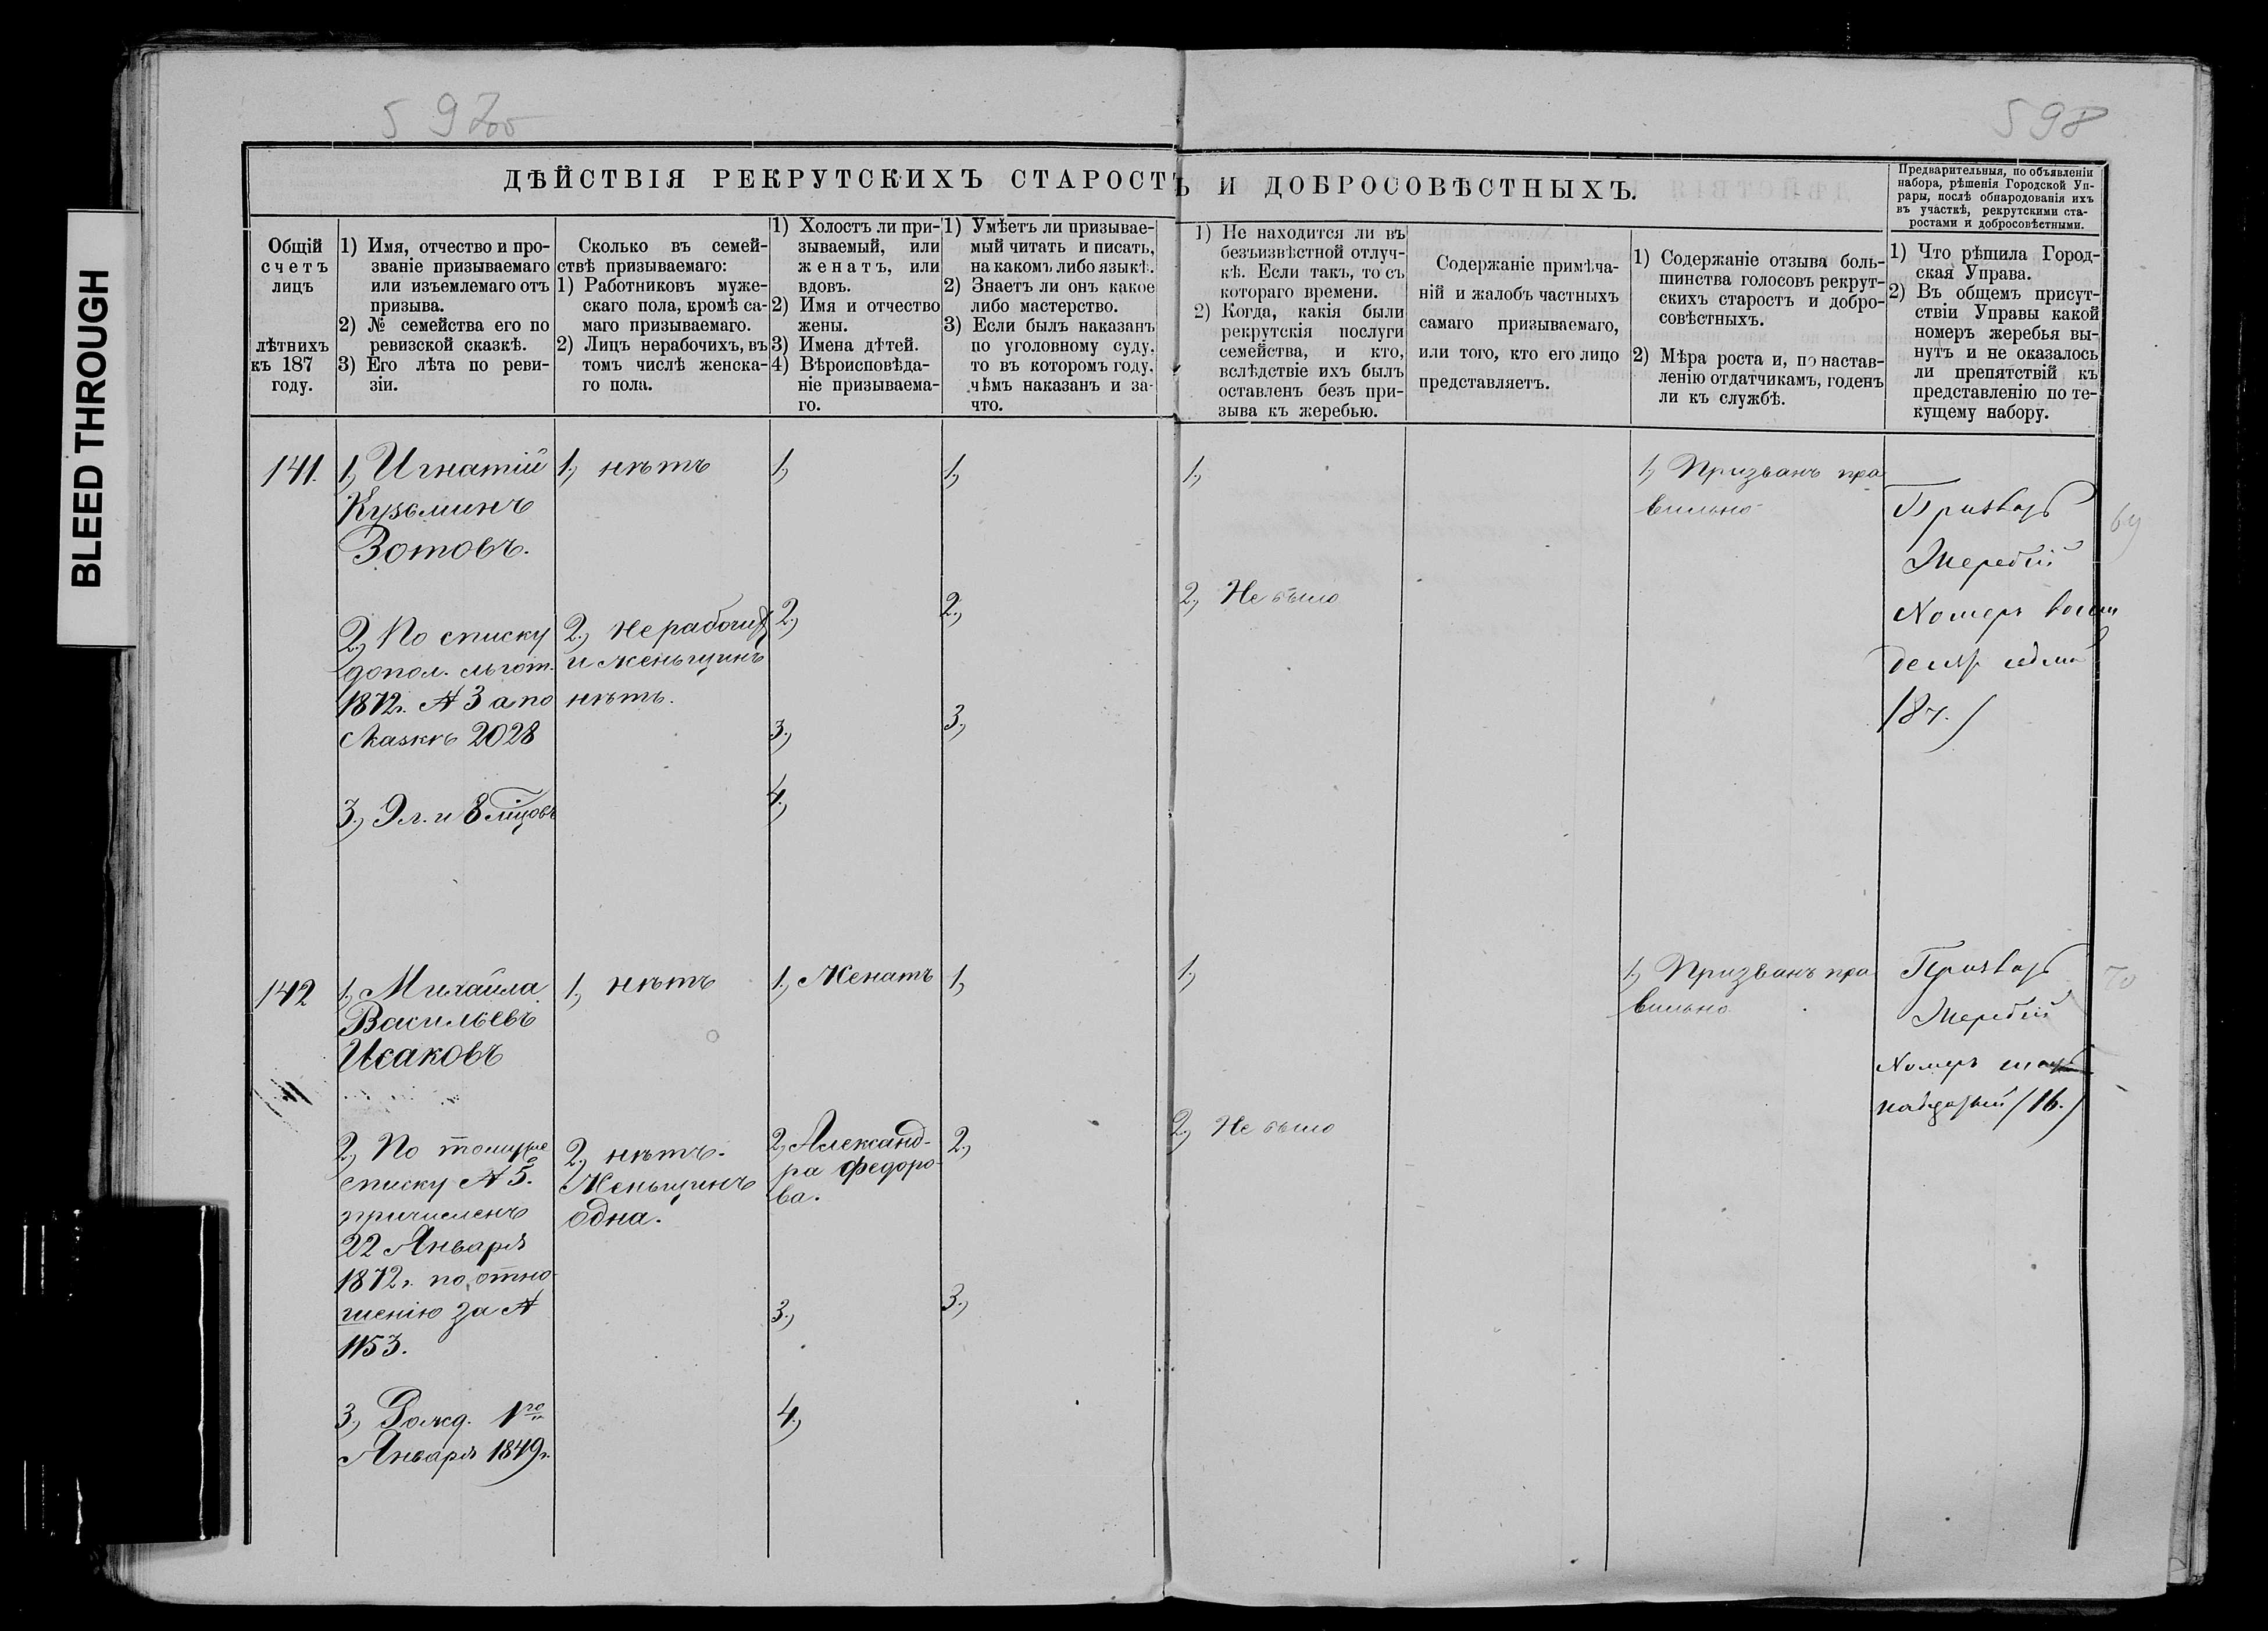 BLEED THROUGH
597об
598
ДѢЙСТВІЯ РЕКРУТСКИХЪ СТАРОСТЪ И ДОБРОСОВѢСТНЫХЪ.
Предварительныя, по объявленіи
набора, рѣшенія Городской Уп-
рары, послѣ обнародованія ихъ
въ участкѣ, рекрутскими ста-
ростами и добросовѣстными.
Общій
счетъ
лицъ
лѣтнихъ
къ 187
году.
1) Имя, отчество и про-
званіе призываемаго
или изъемлемаго отъ
призыва.
2) № семейства его по
ревизской сказкѣ.
3) Его лѣта по реви-
зіи.
Сколько въ семей-
ствѣ призываемаго:
1) Работниковъ муже-
скаго пола, кромѣ са-
маго призываемаго.
2) Лицъ нерабочихъ, въ
томъ числѣ женска-
го пола.
1) Холостъ ли при-
зываемый, или
женатъ, или
вдовъ.
2) Имя и отчество
жены.
3) Имена дѣтей.
4) Вѣроисповѣда-
ніе призываема-
го.
1) Умѣетъ ли призывае-
мый читать и писать,
на какомъ либо языкѣ.
2) Знаетъ ли онъ какое
либо мастерство.
3) Если былъ наказанъ
по уголовному суду,
то въ которомъ году,
чѣмъ наказанъ и за-
что.
1) Не находится ли въ
безъизвѣстной отлуч-
кѣ. Если такъ, то съ
котораго времени.
2) Когда, какія были
рекрутскія послуги
семейства, и кто,
вслѣдствіе ихъ былъ
оставленъ безъ при-
зыва къ жеребью.
Содержаніе примѣча-
ній и жалобъ частныхъ
самаго призываемаго,
или того, кто его лицо
представляетъ.
1) Содержаніе отзыва боль-
шинства голосовъ рекрут-
скихъ старостъ и добро-
совѣстныхъ.
2) Мѣра роста и, по настав-
ленію отдатчикамъ, годенъ
ли къ службѣ.
1) Что рѣшила Город-
ская Управа.
2) Въ общемъ присут-
ствіи Управы какой
номеръ жеребья вы-
нутъ и не оказалось
ли препятствій къ
представленію по те-
кущему набору.
141.
1., Игнатій
Кузьминъ
Зотовъ.
2., По списку
допол. льгот.
1872г. № 3 а по
сказкѣ 2028
3., 9 л. и 8 міцовъ
1., нѣтъ
2., Нерабочихъ
и женьщинъ
нѣтъ.
1.,
2.,
3.,
4.,
1.,
2.,
3.,
1.,
2., Не было
1., Призванъ пра
вильно
Призвать
Жеребій
Номеръ восем
десят седмой
/87./
69
142
1., Михайла
Васильевъ
Исаковъ
2., По тому же
списку № 5.
причисленъ
22 Января
1872г. по отно-
шенію за №
1153.
3., Рожд. 1го
Января 1849г.
1., нѣтъ
2., нѣтъ.
Женьщинъ
одна.
1., Женатъ
2., Александ-
ра Федоро-
ва.
3.,
4.,
1.,
2.,
3.,
1.,
2., Не было
1., Призванъ пра
вильно
Призвать
Жеребій
Номеръ шест
надцатый /16./
70